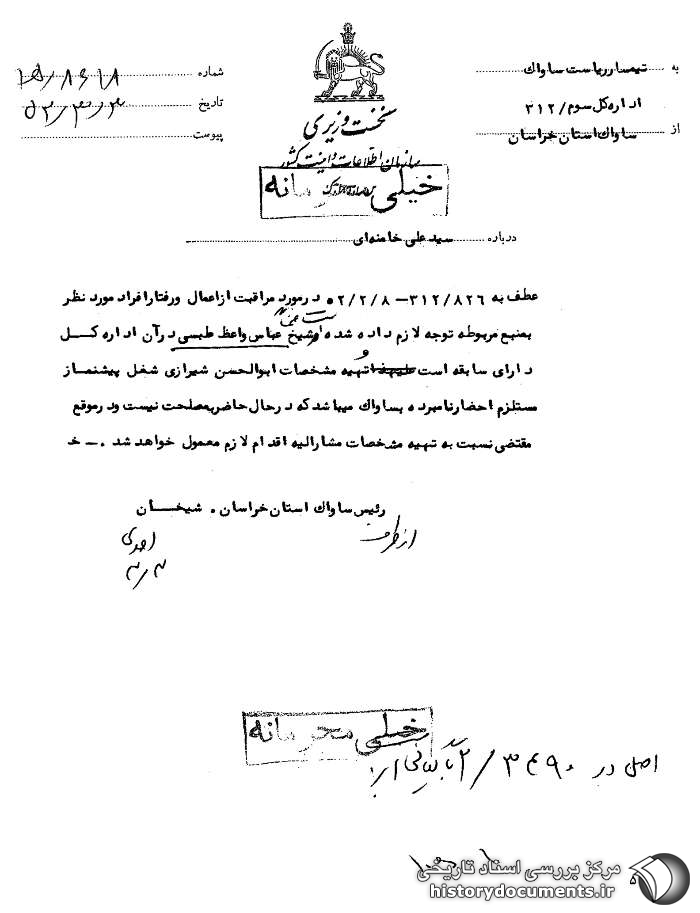 به تیمسار ریاست ساواک
اداره کل سوم / ۳۱۲
از ساواک استان خراسان
نخست وزیری
سازمان اطلاعات و امنیت کشور
شماره
تاریخ ۵۲/۳/۳
پیوست
خیلی محرمانه
درباره سید علی خامنه‌ای
عطف به ۳۱۲/۸۲۶ – ۵۲/۲/۸ در مورد مراقبت از اعمال و رفتار افراد مورد نظر
بمنبع مربوطه توجه لازم داده شده شیخ عباس واعظ طبسی در آن اداره کل
دارای سابقه است و تهیه مشخصات ابوالحسن شیرازی شغل پیشنماز
مستلزم احضار نامبرده بساواک میباشد که در حال حاضر بمصلحت نیست و در موقع
مقتضی نسبت به تهیه مشخصات مشارالیه اقدام لازم معمول خواهد شد . – خ
رئیس ساواک استان خراسان . شیخان
از طرف
احمدی
۳/۳
خیلی محرمانه
اصل در
مرکز بررسی اسناد تاریخی
historydocuments.ir